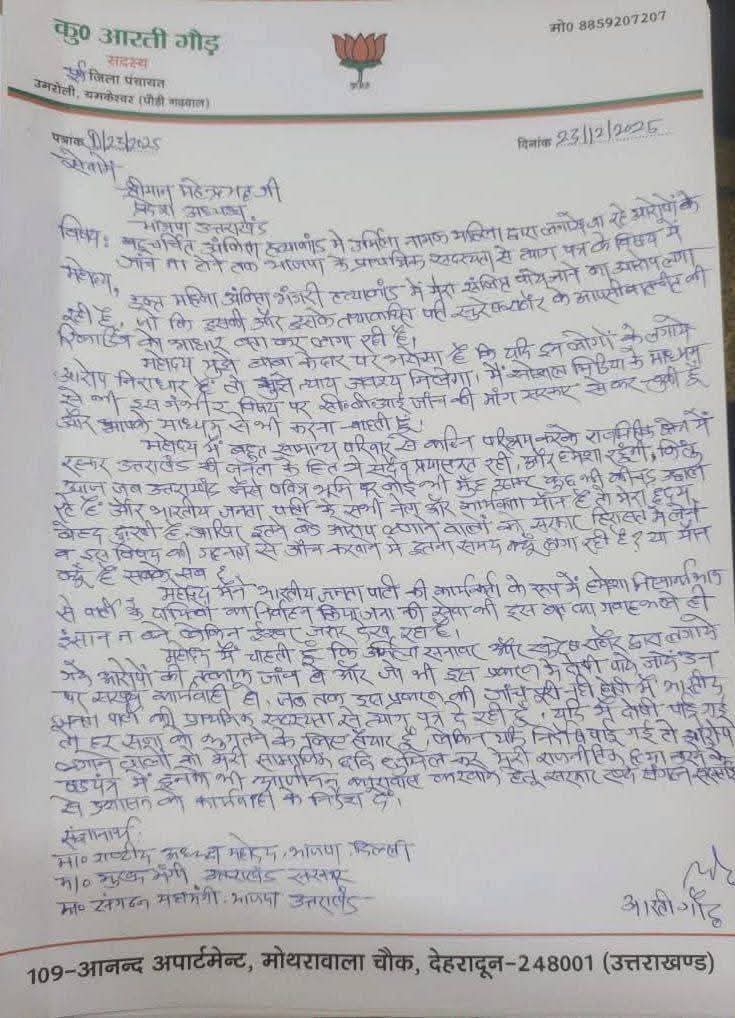 कु0 आरती गौड़
मो0 8859207207
सदस्य
पूर्व जिला पंचायत
उमरोली, यमकेश्वर (पौड़ी गढ़वाल)
पत्रांक 9/23/2025
दिनांक 23/12/2025
सेवा में
श्रीमान महेन्द्र भट्ट जी
प्रदेश अध्यक्ष
भाजपा उत्तराखंड
विषय: बहुचर्चित अंकिता हत्याकांड में उर्मिला नामक महिला द्वारा लगाये जा रहे आरोपों के
जांच ना होने तक भाजपा के प्राथमिक सदस्यता से त्याग पत्र के विषय में
महोदय,
उक्त महिला अंकिता भंडारी हत्याकांड में मेरा संलिप्त पाये जाने का आरोप लगा
रही है, जो कि इसकी और इसके तथाकथित पति सुरेश राठौर के आपसी बातचीत की
रिकॉर्डिंग को आधार बना कर लगा रही है।
महोदय मुझे बाबा केदार पर भरोसा है कि यदि इन लोगों के लगाये
आरोप निराधार हैं तो मुझे न्याय अवश्य मिलेगा। मैं सोशल मिडिया के माध्यम
से भी इस गंभीर विषय पर सी०बी०आई जांच की मांग सरकार से कर चुकी हूँ
और आपके माध्यम से भी करना चाहती हूँ।
महोदय मैं बहुत सामान्य परिवार से कठिन परिश्रम करके राजनितिक क्षेत्र में
रहकर उत्तराखंड की जनता के हित में सदैव प्रयासरत रही, और हमेशा रहूँगी, किंतु
आज जब उत्तराखंड जैसे पवित्र भूमि पर कोई भी मुँह उठाकर कुछ भी कीचड़ उछाल
रहे हैं और भारतीय जनता पार्टी के सभी नेता और कार्यकर्ता मौन हैं तो मेरा हृदय
बेहद दुखी है, आखिर इतने बड़े आरोप लगाने वालों को सरकार हिरासत में लेने
व इस विषय की गहनता से जाँच करवाने में इतना समय क्यूँ लगा रही है? या मौन
क्यूँ है सबके सब?
महोदय मैंने भारतीय जनता पार्टी की कार्यकर्ता के रूप में हमेशा निस्वार्थ भाव
से पार्टी के दायित्वों का निर्वहन किया जनता की सेवा की इस बात का गवाह भले ही
इंसान न बने लेकिन ईश्वर जरूर देख रहा है।
महोदय मैं चाहती हूँ कि उर्मिला सनावर और सुरेश राठौर द्वारा लगाये
गये आरोपों की तत्काल जांच हो और जो भी इस प्रकरण में दोषी पाये जायें उन
पर सख्त कार्यवाही हो, जब तक इस प्रकरण की जांच पूरी नहीं होती मैं भारतीय
जनता पार्टी की प्राथमिक सदस्यता से त्याग पत्र दे रही हूँ, यदि मैं दोषी पाई गई
तो हर सजा को भुगतने के लिए तैयार हूँ, लेकिन यदि निर्दोष पाई गई तो आरोप
लगाने वालों को मेरी सामाजिक छवि धूमिल कर मेरी राजनीतिक हत्या करने के
षडयंत्र में इनको भी आजीवन कारावास करवाने हेतु सरकार एवं संगठन
से प्रशासन को कार्यवाही के निर्देश दें।
संज्ञानार्थ
मा० राष्ट्रीय अध्यक्ष महोदय, भाजपा दिल्ली
मा० मुख्य मंत्री उत्तराखंड सरकार
मा० संगठन महामंत्री भाजपा उत्तराखंड
आरती गौड़
109-आनन्द अपार्टमेन्ट, मोथरावाला चौक, देहरादून-248001 (उत्तराखण्ड)